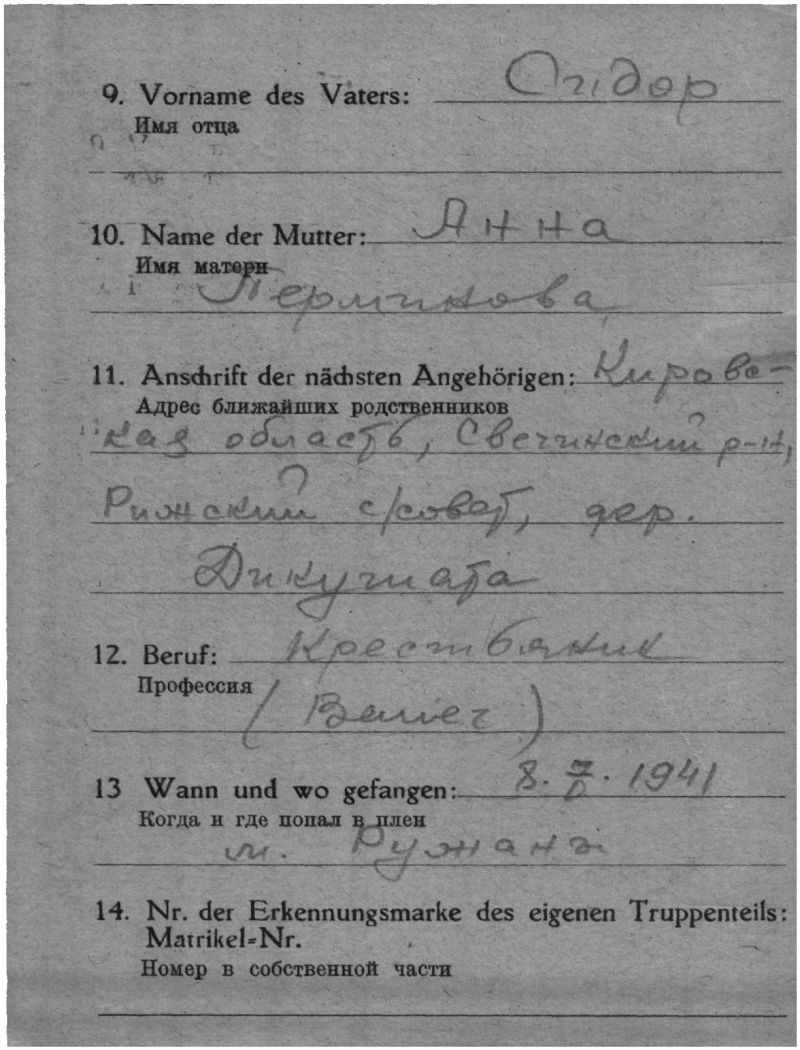 9. Vorname des Vaters: Сидор
Имя отца
10. Name der Mutter: Анна
Имя матери
Перминова
11. Anschrift der nächsten Angehörigen: Кировс-
Адрес ближайших родственников
кая область, Свечинский р-н,
Рижский с/совет, дер.
Дикушата
12. Beruf: Крестьянин
Профессия
13 Wann und wo gefangen: 8. 7. 1941
Когда и где попал в плен
м. Ружаны
14. Nr. der Erkennungsmarke des eigenen Truppenteils:
Matrikel-Nr.
Номер в собственной части